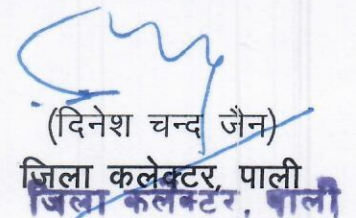 (दिनेश चन्द जैन)
जिला कलेक्टर, पाली
जिला कलेक्टर, पाली